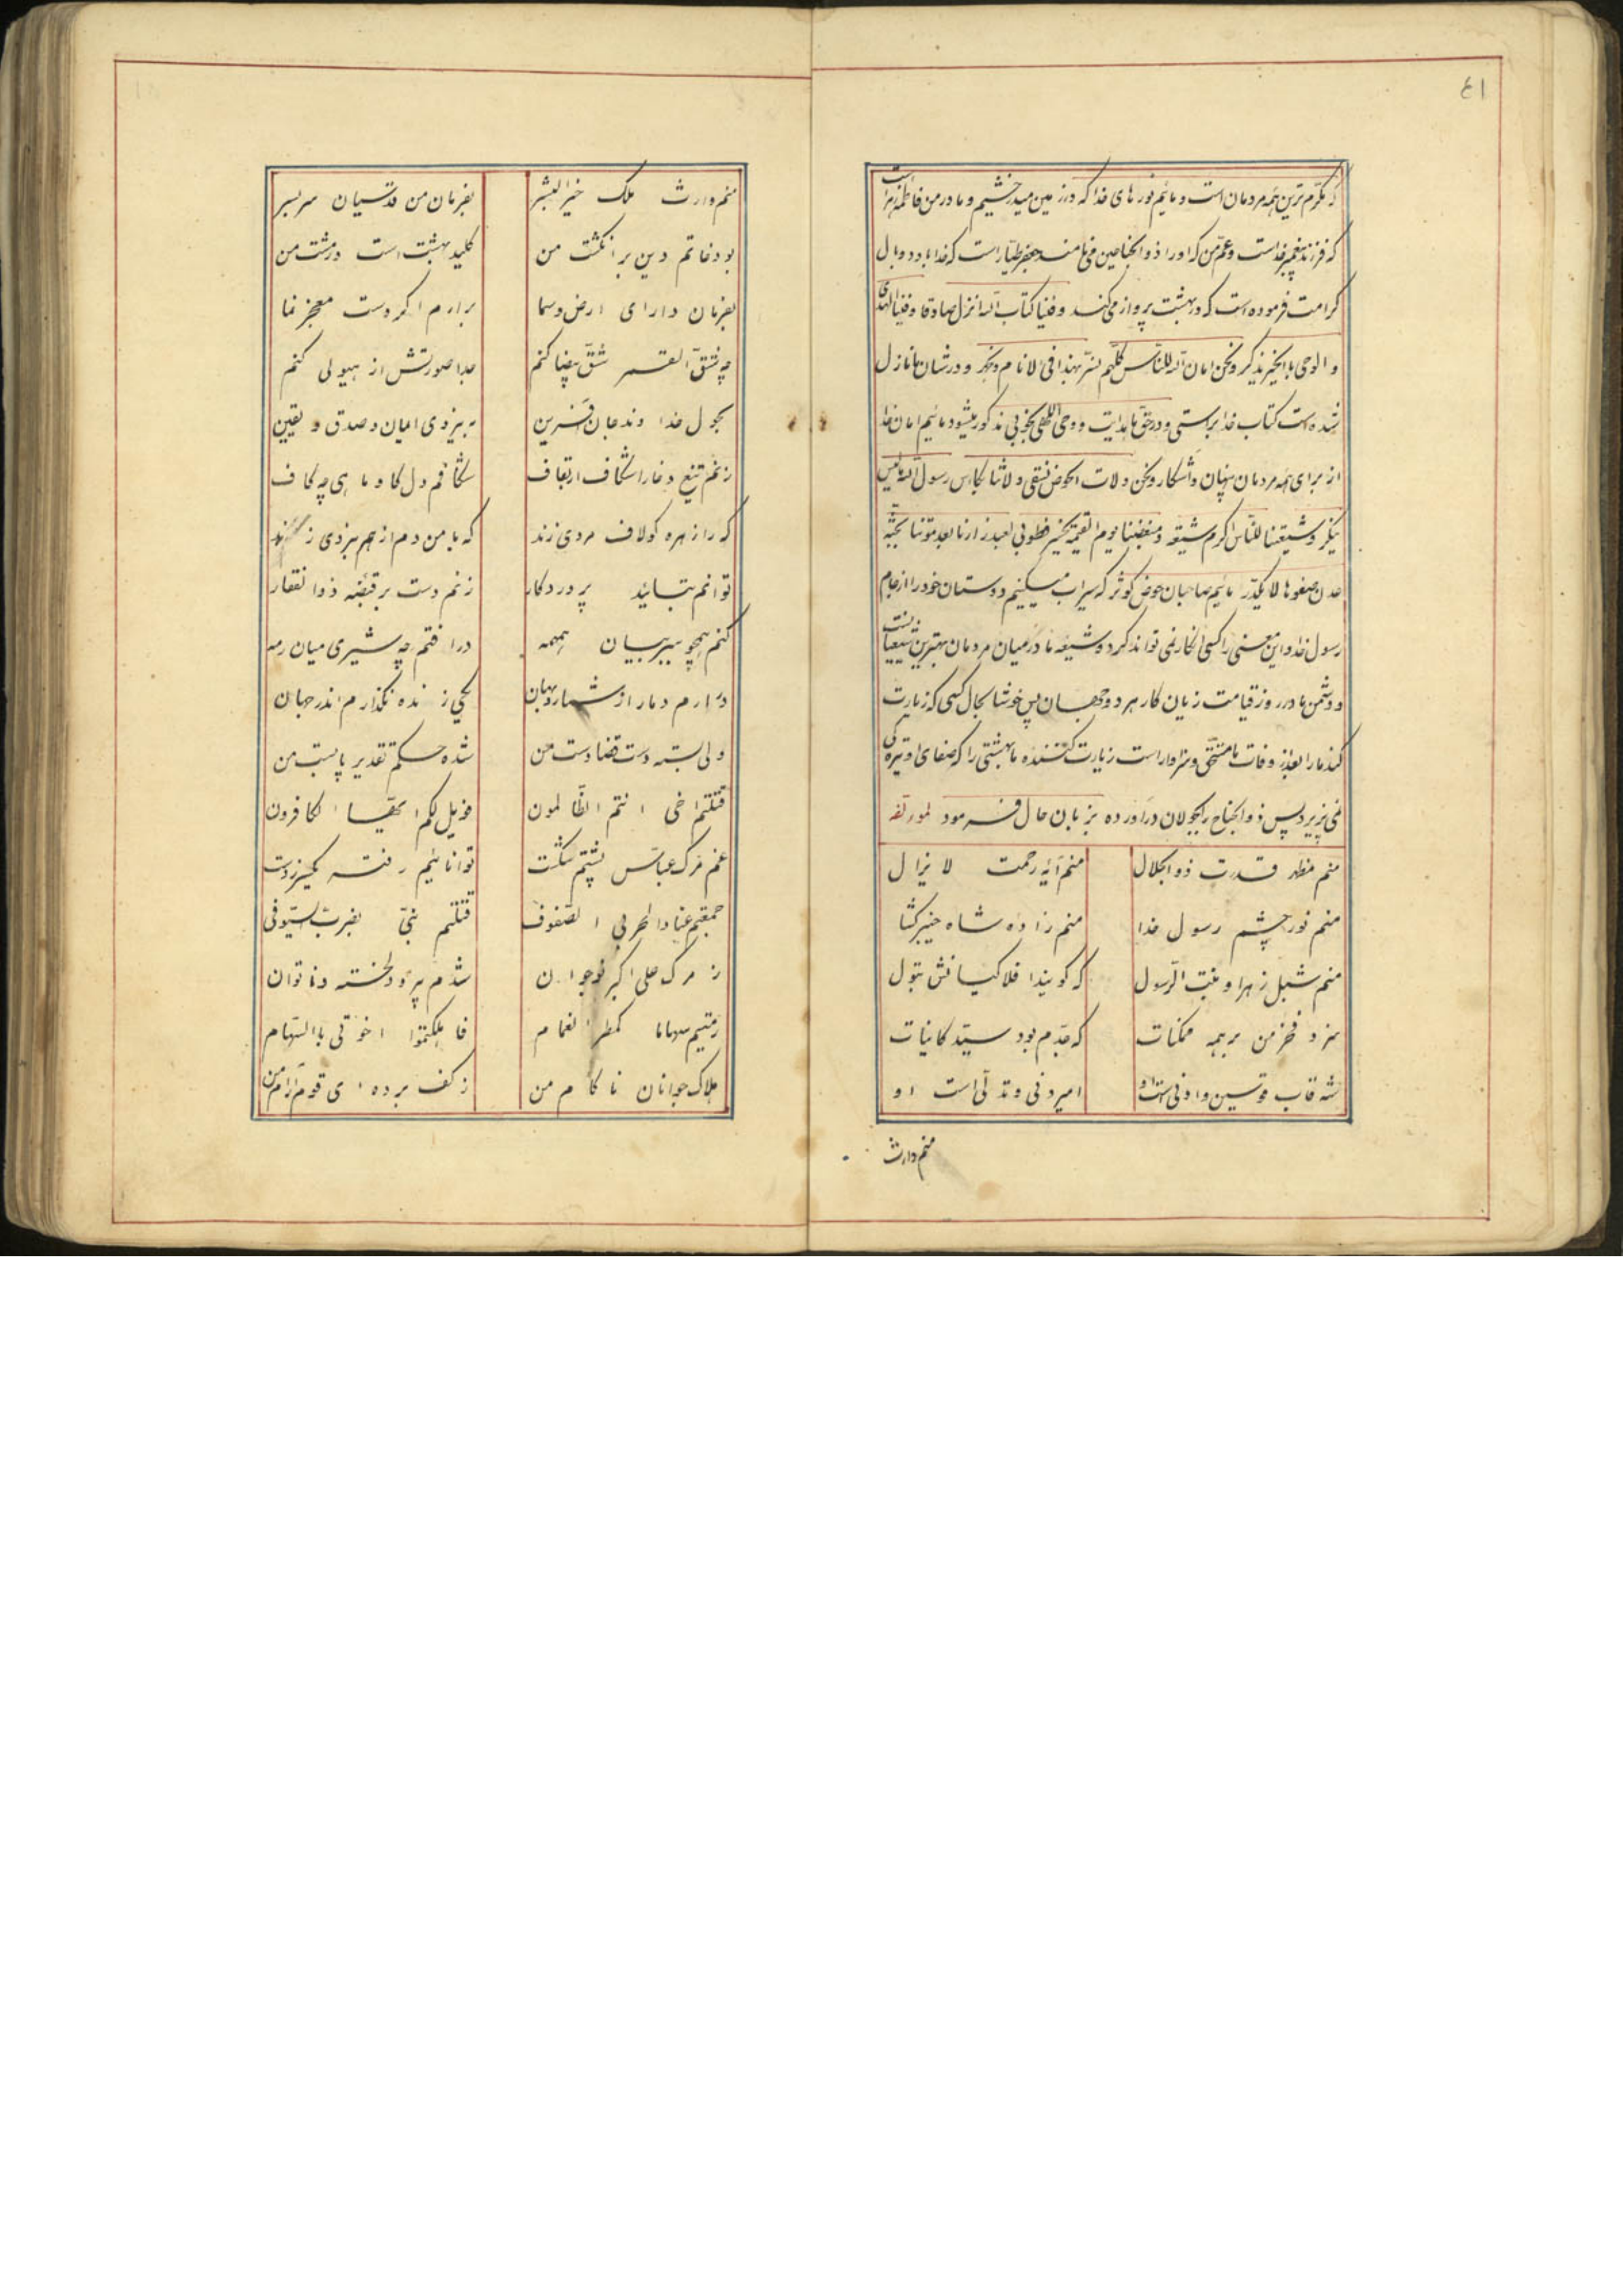 ٤١
که مکرم ترین همه مردمان است و مائیم نورهای خدا که در زمین میدرخشیم و مادر من فاطمه زهرا است
که فرزند پیغمبر خداست و عم من که او را ذو الجناحین می نامند جعفر طیار است که خدا با و دو بال
کرامت فرموده است که در بهشت پرواز می کند و فینا کتاب الله انزل صادقا و فینا الهدی
و الوحی بالخیر یذکر و نحن امان الله للناس کلهم نسر بهذا فی الانام و نجهر و در شان ما نازل
شده است کتاب خدا براستی و در حق ما هدایت و وحی الهی بخوبی مذکور میشود مائیم امان خدا
از برای همه مردمان پنهان و آشکار و نحن ولات الحوض نسقی ولاتنا بکاس رسول الله ما لیس
ینکر و شیعتنا للناس اکرم شیعة و مبغضنا یوم القیمة یخسر فطوبی لعبد زارنا بعد موتنا بجنة
عدن صفوها لا یکدر مائیم صاحبان حوض کوثر که سیراب میکنیم دوستان خود را از جام
رسول خدا و این معنی را کسی انکار نمی تواند کرد و شیعه ما در میان مردمان بهترین شیعیانست
و دشمن ما در روز قیامت زیان کار هر دو جهان پس خوشا بحال کسی که زیارت
کند ما را بعد از وفات ما مستحق و سزاوار است زیارت کننده ما بهشتی را که صفای او تیره کی
نمی پزیرد پس ذو الجناح را بجولان درآورده بزبان حال فرمود لمؤلفه
منم مظهر قدرت ذو الجلال منم آیه رحمت لا یزال
منم نور چشم رسول خدا منم زاده شاه خیبر کشا
منم شبل زهرا و بنت الرسول که کویند افلاکیانش بتول
سزد فخر من بر همه ممکنات که جدم بود سید کاینات
شه قاب قوسین و ادنی است او امیر دنی و تدلی است او
منم وارث
منم وارث ملک خیر البشر بفرمان من قدسیان سر بسر
بود خاتم دین بر انکشت من کلید بهشت است در مشت من
بفرمان دارای ارض و سما برارم اکر دست معجز نما
چه شق القمر شق بیضا کنم جدا صورتش از هیولی کنم
بحول خدا وند جان آفرین به نیروی ایمان و صدق و یقین
زنم تیغ و خارا شکاف از تعاف شکافم دل کاو ماهی چه کاف
که را زهره کو لاف مردی زند که با من دم از هم نبردی زند
توانم بتائید پروردکار زنم دست بر قبضه ذوالفقار
کنم همچو ببر بیان همهمه در افتم چه شیری میان رمه
درارم دمار از شما در جهان یکی زنده نکذارم اندر جهان
ولی بسته دست قضا دست من شده حکم تقدیر پا بست من
قتلتم اخی انتم الظالمون فویل لکم ایها الکافرون
غم مرک عباس پشتم شکست توانائیم رفته یکسر ز دست
جمعتم عنادا لحربی الصفوف قتلتم بنی بضرب السیوف
ز مرک علی اکبر نوجوان شدم پیر و دلخسته و ناتوان
رمیتم سهاما کمطر الغمام فاهلکتموا اخوتی بالسهام
هلاک جوانان ناکام من ز کف برده ای قوم آرام من